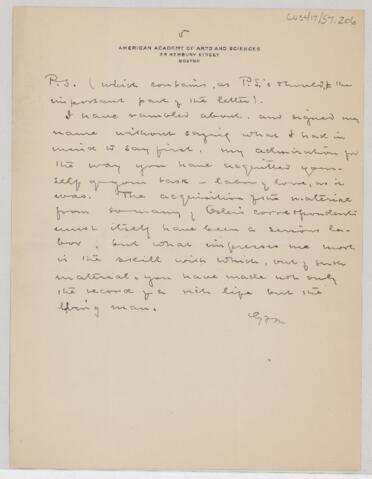 CUS417/57.206
5
AMERICAN ACADEMY OF ARTS AND SCIENCES
28 NEWBURY STREET
BOSTON
P.S. (which contains, as P.S.'s should, the
important part of the letter).
I have rambled about, and signed my
name without saying what I had in
mind to say first, my admiration for
the way you have acquitted your-
self of your task – labor of love, as it
was. The acquisition of the material
from so many of Osler's correspondents
must itself have been a serious la-
bor, but what impresses me most
is the skill with which, out of such
material, you have made not only
the record of a rich life but the
living man.
GFM